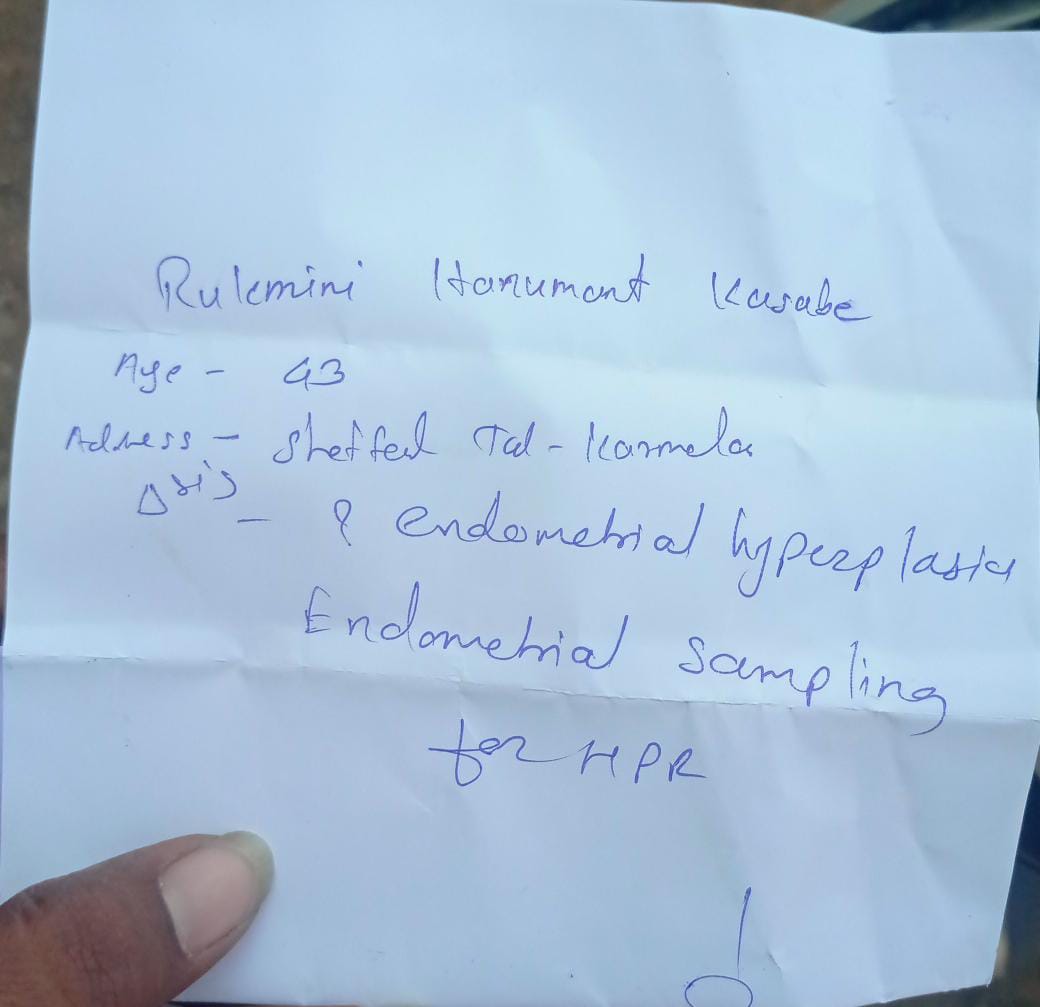 Rukmini Hanumant Kasabe
Age - 43
Adress - Shetfal Tal - Karmala
Δsis - ? endometrial hyperplasia
Endometrial Sampling
for HPR